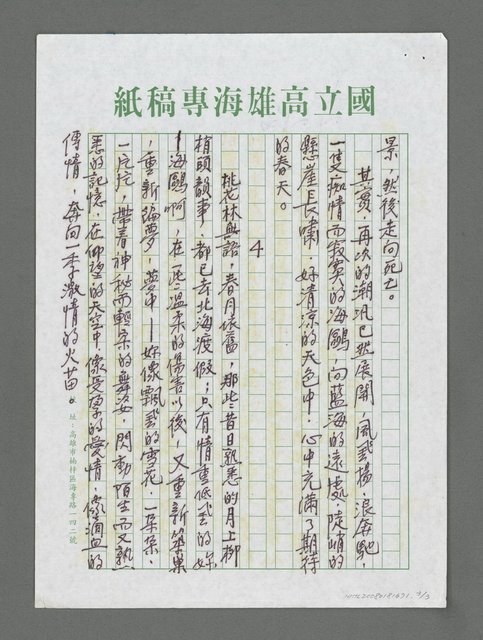 國立高雄海專稿紙
景，然後走向死亡。
其實，再次的潮汎已然展開，風飛揚，浪奔馳，
一隻痴情而寂寞的海鷗，向藍海的遠處，陡峭的
懸崖長嘯，好清涼的天色中，心中充滿了期待
的春天。
4
桃花林無語，春月依舊，那些昔日熟悉的月上柳
梢頭韻事，都已去北海渡假；只有情重低飛的妳
—海鷗啊，在一些溫柔的傷害以後，又重新築巢
，重新編夢，夢中—妳像飄飛的雪花，一朵朵，
一片片，帶着神秘而輕柔的舞姿，閃動陌生而又熟
悉的記憶，在仰望的天空中，像受寒的愛情，像滴血的
傳情，奔向一季激情的火苗。
址：高雄市楠梓區海專路一四二號